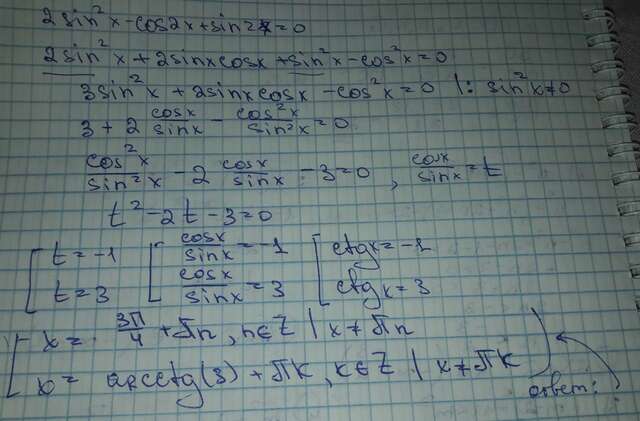 2sin²x-cos2x+sin2x=0
2sin²x+2sinxcosx+sin²x-cos²x=0
3sin²x+2sinxcosx-cos²x=0 |: sin²x≠0
3+2 cosx/sinx - cos²x/sin²x=0
cos²x/sin²x - 2 cosx/sinx - 3=0, cosx/sinx=t
t²-2t-3=0
[t=-1 [cosx/sinx=-1 [ctgx=-1
t=3 cosx/sinx=3 ctgx=3
[x= 3π/4+πn, n∈Z | x≠πn
x= arcctg(3)+πk, k∈Z | x≠πk)
ответ: